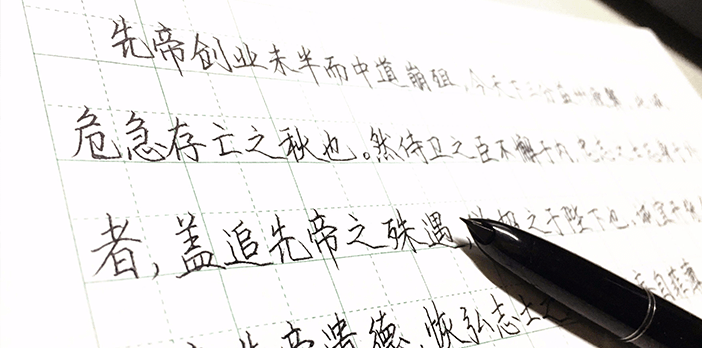 先帝创业未半而中道崩殂,今天下三分,益州疲弊,此
危急存亡之秋也。然侍卫之臣不懈于内,忠志之士忘身于外
者,盖追先帝之殊遇,之于陛下也。诚宜开
先帝遗德,恢弘志士之